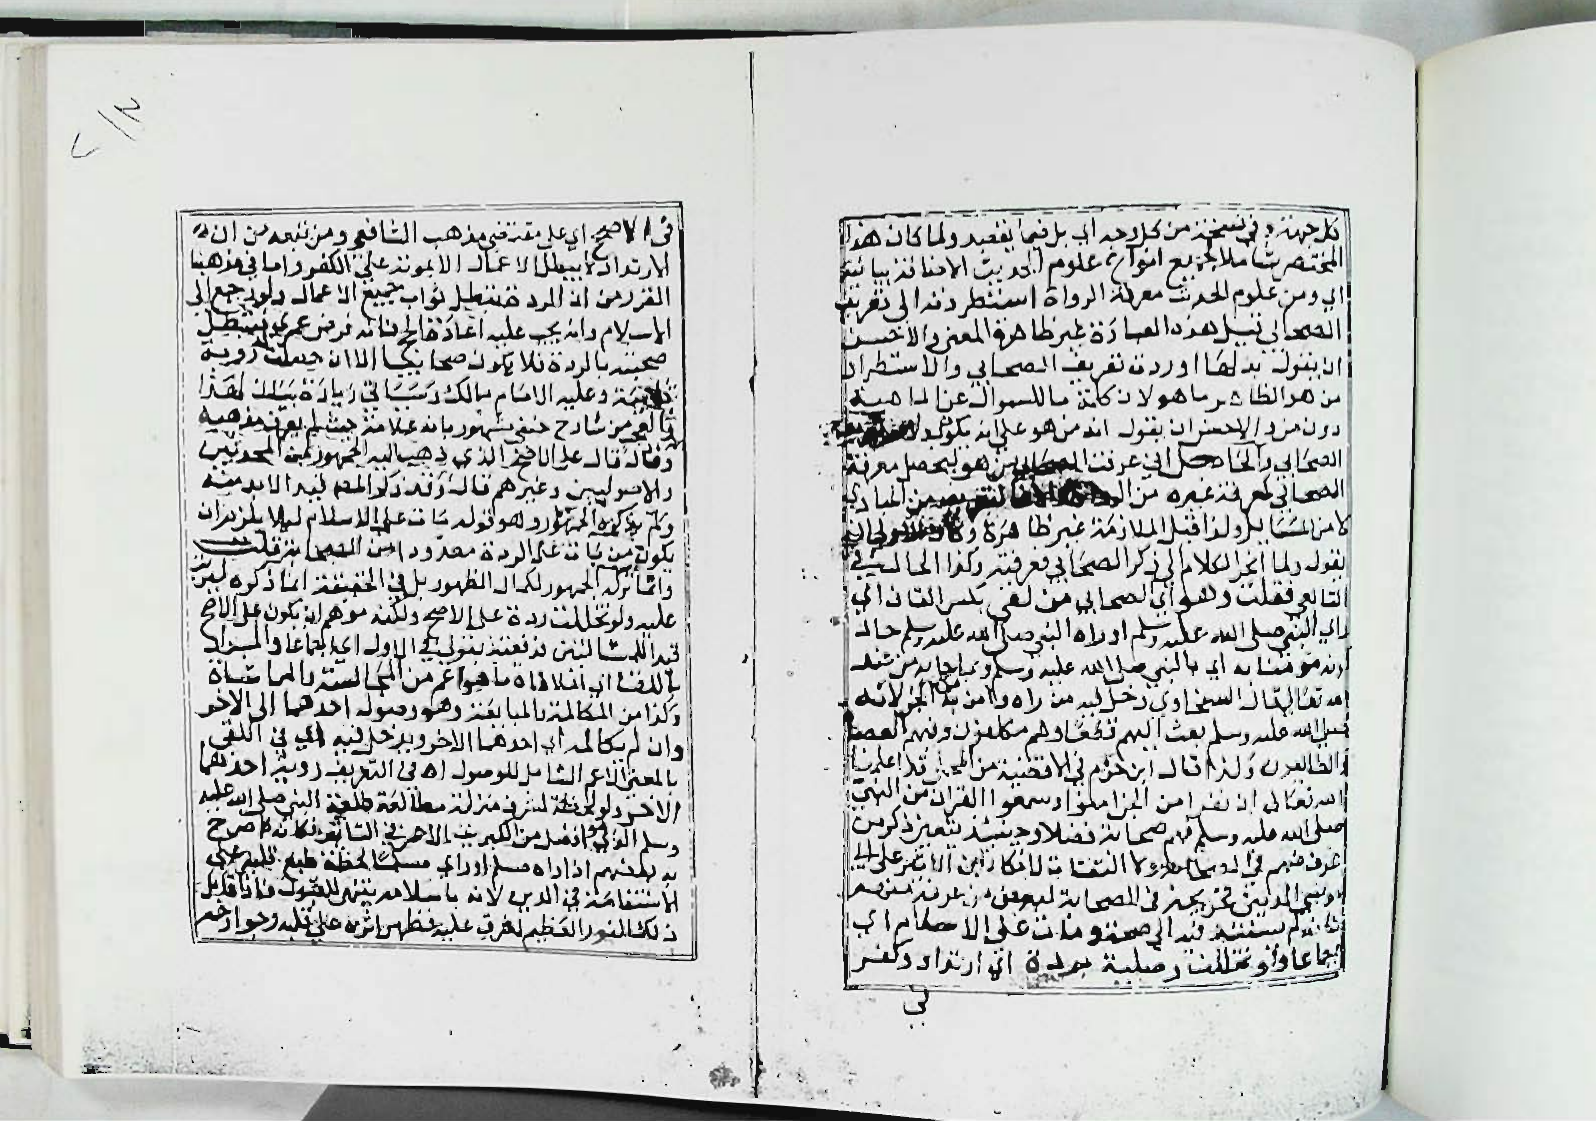 كل جهة وفي نسخة من كل وجه اي بل فيما يقصد ولما كان هذا
المختصر شاملا لجميع انواع علوم الحديث الاضافة بيانية
اي ومن علوم الحديث معرفة الرواة استطردته الى تعريف
الصحابي قيل هذه العبارة غير ظاهرة المعنى والاحسن
ان يقول بدلها اوردت تعريف الصحابي والاستطراد
من هو الظاهر ما هو لان كلمة ما للسوال عن الماهية
دون من والاحسن ان يقول انه من هو على انه يكون
الصحابي والحاصل اني عرفت الصحابي من هو ليحصل معرفة
الصحابي لمعرفة غيره من المبادي
لا من المسايل ولذا قيل الملازمة غير ظاهرة وكان الاولى ان
يقول ولما انجر الكلام الى ذكر الصحابي فعرفته وكذا الحال في
التابعي فقلت وهو اي الصحابي من لقي بكسر القاف اي
راي النبي صلى الله عليه وسلم او راه النبي صلى الله عليه وسلم حال
كونه مومنا به اي بالنبي صلى الله عليه وسلم وبما جا به من عند
الله تعالى قال السخاوي دخل فيه من راه وامن به من الجن لانه
صلى الله عليه وسلم بعث اليهم قطعا وهم مكلفون وفيهم العصاة
والطائعون ولذا قال ابن حزم في الاقضية من المحلى قد اعلمنا
الله تعالى ان نفرا من الجن امنوا وسمعوا القران من النبي
صلى الله عليه وسلم فهم صحابة فضلا وحينئذ يتعين ذكر من
عرف منهم في الصحابة ولا التفات لانكار ابن الاثير على
ابو موسى المديني تخريجه في الصحابة لبعض من عرفه منهم
فانه لم يستند فيه الى حجة ومات على الاسلام اي
اجماعا ولو تخللت وصلية ردة اي ارتداد وكفر
في
في الاصح اي على مقتضى مذهب الشافعي ومن تبعه من ان
الارتداد لا يبطل الاعمال الا بموته على الكفر واما في مذهبنا
المقرر من ان الردة تبطل ثواب جميع الاعمال ولو رجع الى
الاسلام وانه يجب عليه اعادة الحج فانه فرض عمري فتبطل
صحبته بالردة فلا يكون صحابيا الا ان حصلت له روية
ثانية وعليه الامام مالك وسياتي زيادة بيان لهذا
والعجب من شارح حنفي مشهور بانه علامة حيث لم يعرف مذهبه
وقاله قال على الاصح الذي ذهب اليه الجمهور من المحدثين
والاصوليين وغيرهم قال وقد ذكر المص قيدا لا بد منه
ولم يذكره الجمهور وهو قوله مات على الاسلام ليلا يلزم ان
يكون من مات على الردة معدودا من الصحابة قلت
وانما تركه الجمهور لكمال الظهور بل في الحقيقة انما ذكره ليترتب
عليه ولو تخللت ردة على الاصح ولكنه موهم ان يكون على الاصح
قيدا للمسالتين فدفعته بقولي في الاول اي اجماعا والمراد
باللقاء اي الملاقاه ما هو اعم من المجالسة والمماشاة
وكذا من المكالمة والمبايعة وهو وصول احدهما الى الاخر
وان لم يكالمه اي احدهما الاخر ويدخل فيه اي في اللقى
بالمعنى الاعم الشامل للوصول اه في التعريف روية احدهما
الاخر ولو لحظة لشرف منزلة مطالعة طلعة النبي صلى الله عليه
وسلم الذي هو افضل من الكبريت الاحمر في التاثير فكانه كما صرح
به بعضهم اذا راه مسلم او راي مسلما لحظة طبع قلبه على
الاستقامة في الدين لانه باسلامه يتهيى للقبول فاذا قابل
ذلك النور العظيم اشرق عليه فظهر اثره على قلبه وجوارحه